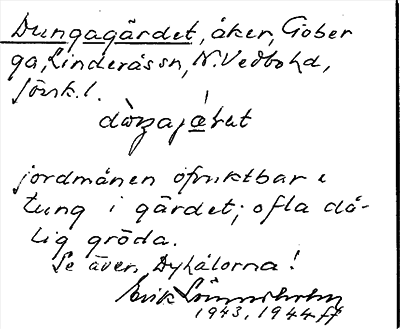 Dungagärdet, åker, Gober
ga, Linderås sn, N. Vedbo hd,
Jönk. l.
jordmånen ofruktbar o
tung i gärdet; ofta då-
lig gröda.
Se även Dyhålorna!
Erik
1943, 1944 ff